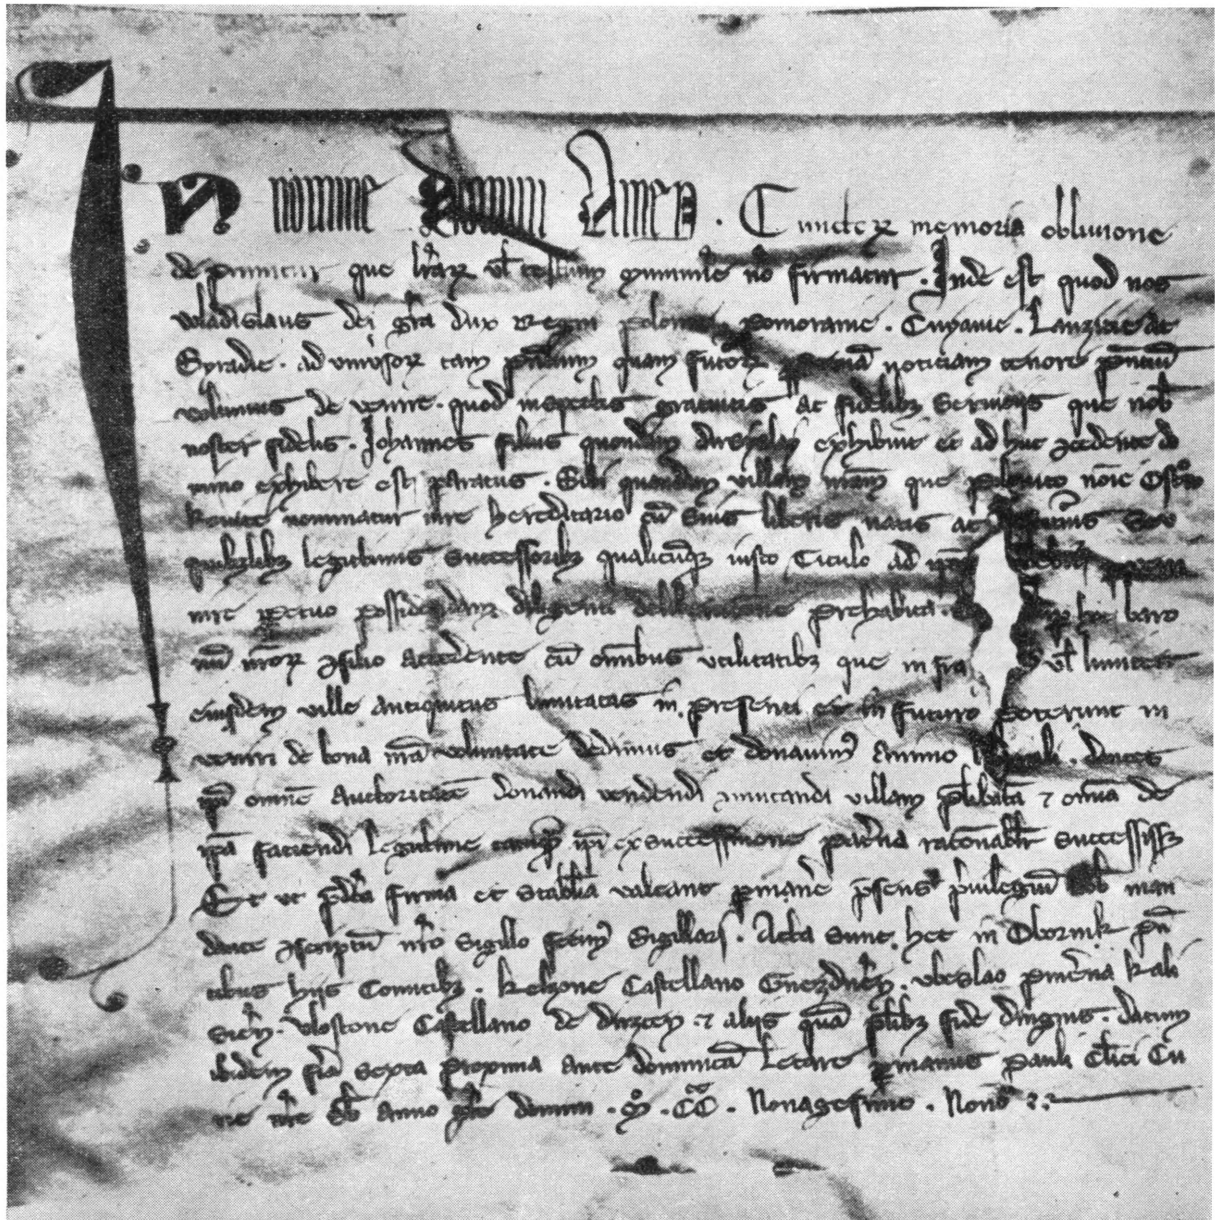 In nomine Domini Amen. Cunctorum memoria oblivione
deprimitur que litterarum vel testium munimine non firmatur. Inde est quod nos
Wladislaus dei gratia dux Regni polonie pomoranie. Cuyavie. Lanzicie ac
Syradie. ad universorum tam presentium quam futurorum noticiam tenore presentium
volumus devenire. quod inspectis gratuitis ac fidelibus Serviciis que nobis
noster fidelis. Johannes filius quondam exhibuit et adhuc
exhibere est paratus. Sibi quandam villam nostram que polonico nomine
nominatur iure hereditario cum Suis liberis natis ac Seu
quibuslibet legitimis Successoribus qualicumque iusto Titulo ad
iure perpetuo possidendam diligenti deliberatione prehabita. baro
num nostrorum consilio accedente cum omnibus utilitatibus que infra vel limites
eiusdem ville antiquitus limitatas in presenti et in futuro poterunt in
veniri de bona nostra voluntate dedimus et donavimus animo . dantes
ipsi omnem auctoritatem donandi vendendi commutandi villam prelibatam et omnia de
ipsa faciendi legitime ipsi ex successione paterna rationabiliter Successisset
Et ut predicta firma et stabilia valeant permanere presens privilegium man
dante conscriptum nostro Sigillo fecimus Sigillari. Acta Sunt hec in Obornik presen
tibus hiis Comitibus. Kelzone Castellano Gneznensi. Ubeslao Kali
siensi. Vlostone Castellano de et aliis quam pluribus fide dignis. datum
ibidem feria Sexta proxima ante dominicam Letare per manus pauli Clerici Cu
rie nostre Sub anno gratie domini. M. CC. Nonagesimo. Nono